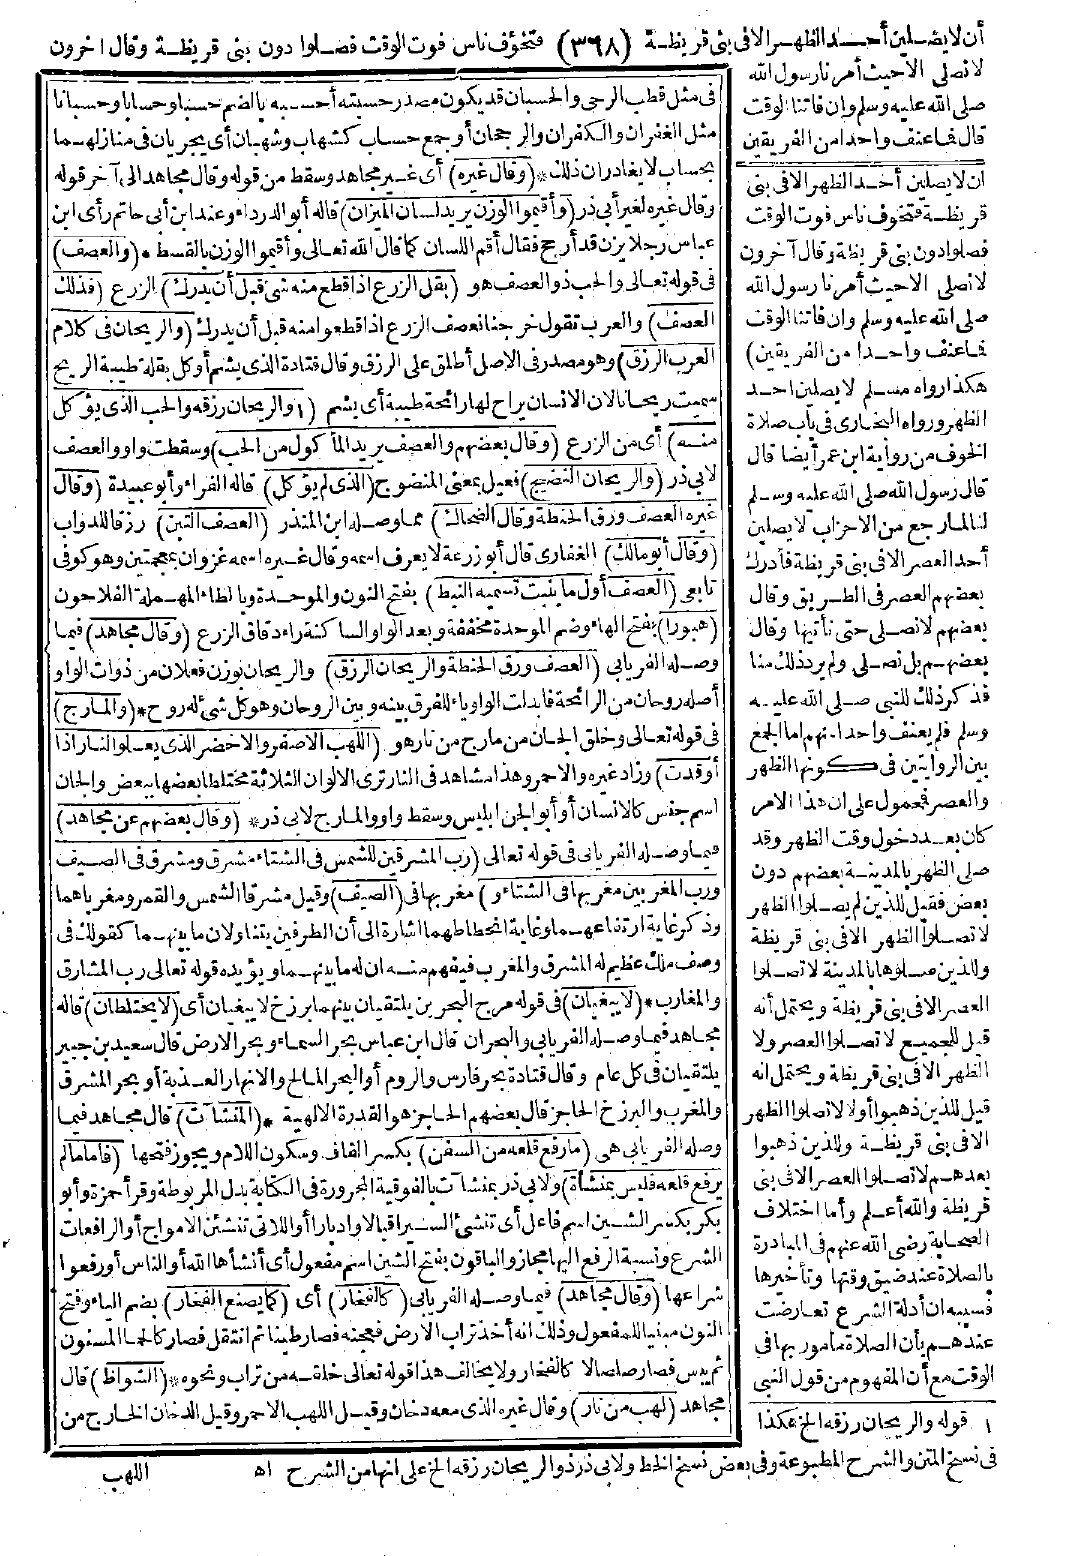 أن لا يصلين أحد الظهر الا في بني قريظة (٣٦٨) فتخوف ناس فوت الوقت فصلوا دون بني قريظة وقال آخرون
لا نصلي الا حيث أمرنا رسول الله
صلى الله عليه وسلم وان فاتنا الوقت
قال فما عنف واحدا من الفريقين
ان لا يصلين أحد الظهر الا في بني
قريظة فتخوف ناس فوت الوقت
فصلوا دون بني قريظة وقال آخرون
لا نصلي الا حيث أمرنا رسول الله
صلى الله عليه وسلم وان فاتنا الوقت
فما عنف واحدا من الفريقين)
هكذا رواه مسلم لا يصلين احد
الظهر ورواه البخاري في باب صلاة
الخوف من رواية ابن عمر أيضا قال
قال رسول الله صلى الله عليه وسلم
لنا لما رجع من الاحزاب لا يصلين
أحد العصر الا في بني قريظة فأدرك
بعضهم العصر في الطريق وقال
بعضهم لا نصلي حتى نأتيها وقال
بعضهم بل نصلي ولم يرد ذلك منا
فذكر ذلك للنبي صلى الله عليه
وسلم فلم يعنف واحدا منهم اما الجمع
بين الروايتين في كونها الظهر
والعصر فمحمول على ان هذا الامر
كان بعد دخول وقت الظهر وقد
صلى الظهر بالمدينة بعضهم دون
بعض فقيل للذين لم يصلوا الظهر
لا تصلوا الظهر الا في بني قريظة
وللذين صلوها بالمدينة لا تصلوا
العصر الا في بني قريظة ويحتمل أنه
قيل للجميع لا تصلوا العصر ولا
الظهر الا في بني قريظة ويحتمل انه
قيل للذين ذهبوا أولا لا تصلوا الظهر
الا في بني قريظة وللذين ذهبوا
بعدهم لا تصلوا العصر الا في بني
قريظة والله أعلم وأما اختلاف
الصحابة رضي الله عنهم في المبادرة
بالصلاة عند ضيق وقتها وتأخيرها
فسببه ان أدلة الشرع تعارضت
عندهم بأن الصلاة مأمور بها في
الوقت مع أن المفهوم من قول النبي
في مثل قطب الرحى والحسبان قد يكون مصدر حسبته أحسبه بالضم حسبا وحسابا وحسبانا
مثل الغفران والكفران والرجحان أو جمع حساب كشهاب وشهبان أي يجريان في منازلهما
بحساب لا يغادران ذلك * (وقال غيره) أي غير مجاهد وسقط من قوله وقال مجاهد الى آخر قوله
وقال غيره لغير أبي ذر (وأقيموا الوزن يريد لسان الميزان) قاله أبو الدرداء وعند ابن أبي حاتم رأى ابن
عباس رجلا يزن قد أرجح فقال أقم اللسان كما قال الله تعالى وأقيموا الوزن بالقسط * (والعصف)
في قوله تعالى والحب ذو العصف هو (بقل الزرع اذا قطع منه شئ قبل أن يدرك) الزرع (فذلك
العصف) والعرب تقول خرجنا نعصف الزرع اذا قطعوا منه قبل أن يدرك (والريحان في كلام
العرب الرزق) وهو مصدر في الاصل أطلق على الرزق وقال قتادة الذي يشم أو كل بقلة طيبة الريح
سميت ريحانا لان الانسان يراح لها رائحة طيبة أي يشم (١ والريحان رزقه والحب الذي يؤكل
منه) أي من الزرع (وقال بعضهم والعصف يريد المأكول من الحب) وسقطت واو والعصف
لابي ذر (والريحان النضيج) فعيل بمعنى المنضوج (الذي لم يؤكل) قاله الفراء وأبو عبيدة (وقال
غيره العصف ورق الحنطة وقال الضحاك) مما وصله ابن المنذر (العصف التبن) رزقا للدواب
(وقال أبو مالك) الغفاري قال أبو زرعة لا يعرف اسمه وقال غيره اسمه غزوان بمعجمتين وهو كوفي
تابعي (العصف أول ما ينبت تسميه النبط) بفتح النون والموحدة وبالطاء المهملة الفلاحون
(هبورا) بفتح الهاء وضم الموحدة مخففة وبعد الواو الساكنة راء دقاق الزرع (وقال مجاهد) فيما
وصله الفريابي (العصف ورق الحنطة والريحان الرزق) والريحان بوزن فعلان من ذوات الواو
أصله روحان من الرائحة فابدلت الواو ياء للفرق بينه وبين الروحان وهو كل شئ له روح * (والمارج)
في قوله تعالى وخلق الجان من مارج من نار هو (اللهب الاصفر والاخضر الذي يعلوا النار اذا
أوقدت) وزاد غيره والاحمر وهذا مشاهد في النار ترى الالوان الثلاثة مختلطا بعضها ببعض والجان
اسم جنس كالانسان أو أبو الجن ابليس وسقط واو والمارج لابي ذر * (وقال بعضهم عن مجاهد)
فيما وصله الفريابي في قوله تعالى (رب المشرقين للشمس في الشتاء مشرق ومشرق في الصيف
ورب المغربين مغربها في الشتاء و) مغربها في (الصيف) وقيل مشرقا الشمس والقمر ومغرباهما
وذكر غاية ارتفاعهما وغاية انحطاطهما اشارة الى أن الطرفين يتناولان ما بينهما كقولك في
وصف ملك عظيم له المشرق والمغرب فيفهم منه ان له ما بينهما ويؤيده قوله تعالى رب المشارق
والمغارب * (لا يبغيان) في قوله مرج البحرين يلتقيان بينهما برزخ لا يبغيان أي (لا يختلطان) قاله
مجاهد فيما وصله الفريابي والبحران قال ابن عباس بحر السماء وبحر الارض قال سعيد بن جبير
يلتقيان في كل عام وقال قتادة بحر فارس والروم أو البحر المالح والانهار العذبة أو بحر المشرق
والمغرب والبرزخ الحاجز قال بعضهم الحاجز هو القدرة الالهية * (المنشآت) قال مجاهد فيما
وصله الفريابي هي (ما رفع قلعه من السفن) بكسر القاف وسكون اللام ويجوز فتحها (فاما ما لم
يرفع قلعه فليس بمنشأة) ولابي ذر بمنشآت بالفوقية المجرورة في الكتابة بدل المربوطة وقرأ حمزة وأبو
بكر بكسر الشين اسم فاعل أي تنشئ السير اقبالا وادبارا أو اللاتي تنشئن الامواج أو الرافعات
الشرع ونسبة الرفع اليها مجاز والباقون بفتح الشين اسم مفعول أي أنشأها الله أو الناس أو رفعوا
شراعها (وقال مجاهد) فيما وصله الفريابي (كالفخار) أي (كما يصنع الفخار) بضم الياء وفتح
النون مبنيا للمفعول وذلك انه أخذ تراب الارض فعجنه فصار طينا ثم انتقل فصار كالحما المسنون
ثم يبس فصار صلصالا كالفخار ولا يخالف هذا قوله تعالى خلقه من تراب ونحوه * (الشواظ) قال
مجاهد (لهب من نار) وقال غيره الذي معه دخان وقيل اللهب الاحمر وقيل الدخان الخارج من
١ قوله والريحان رزقه الخ هكذا
في نسخ المتن والشرح المطبوعة وفي بعض نسخ الخط ولابي ذر ذو الريحان رزقه الخ على انها من الشرح اه
اللهب